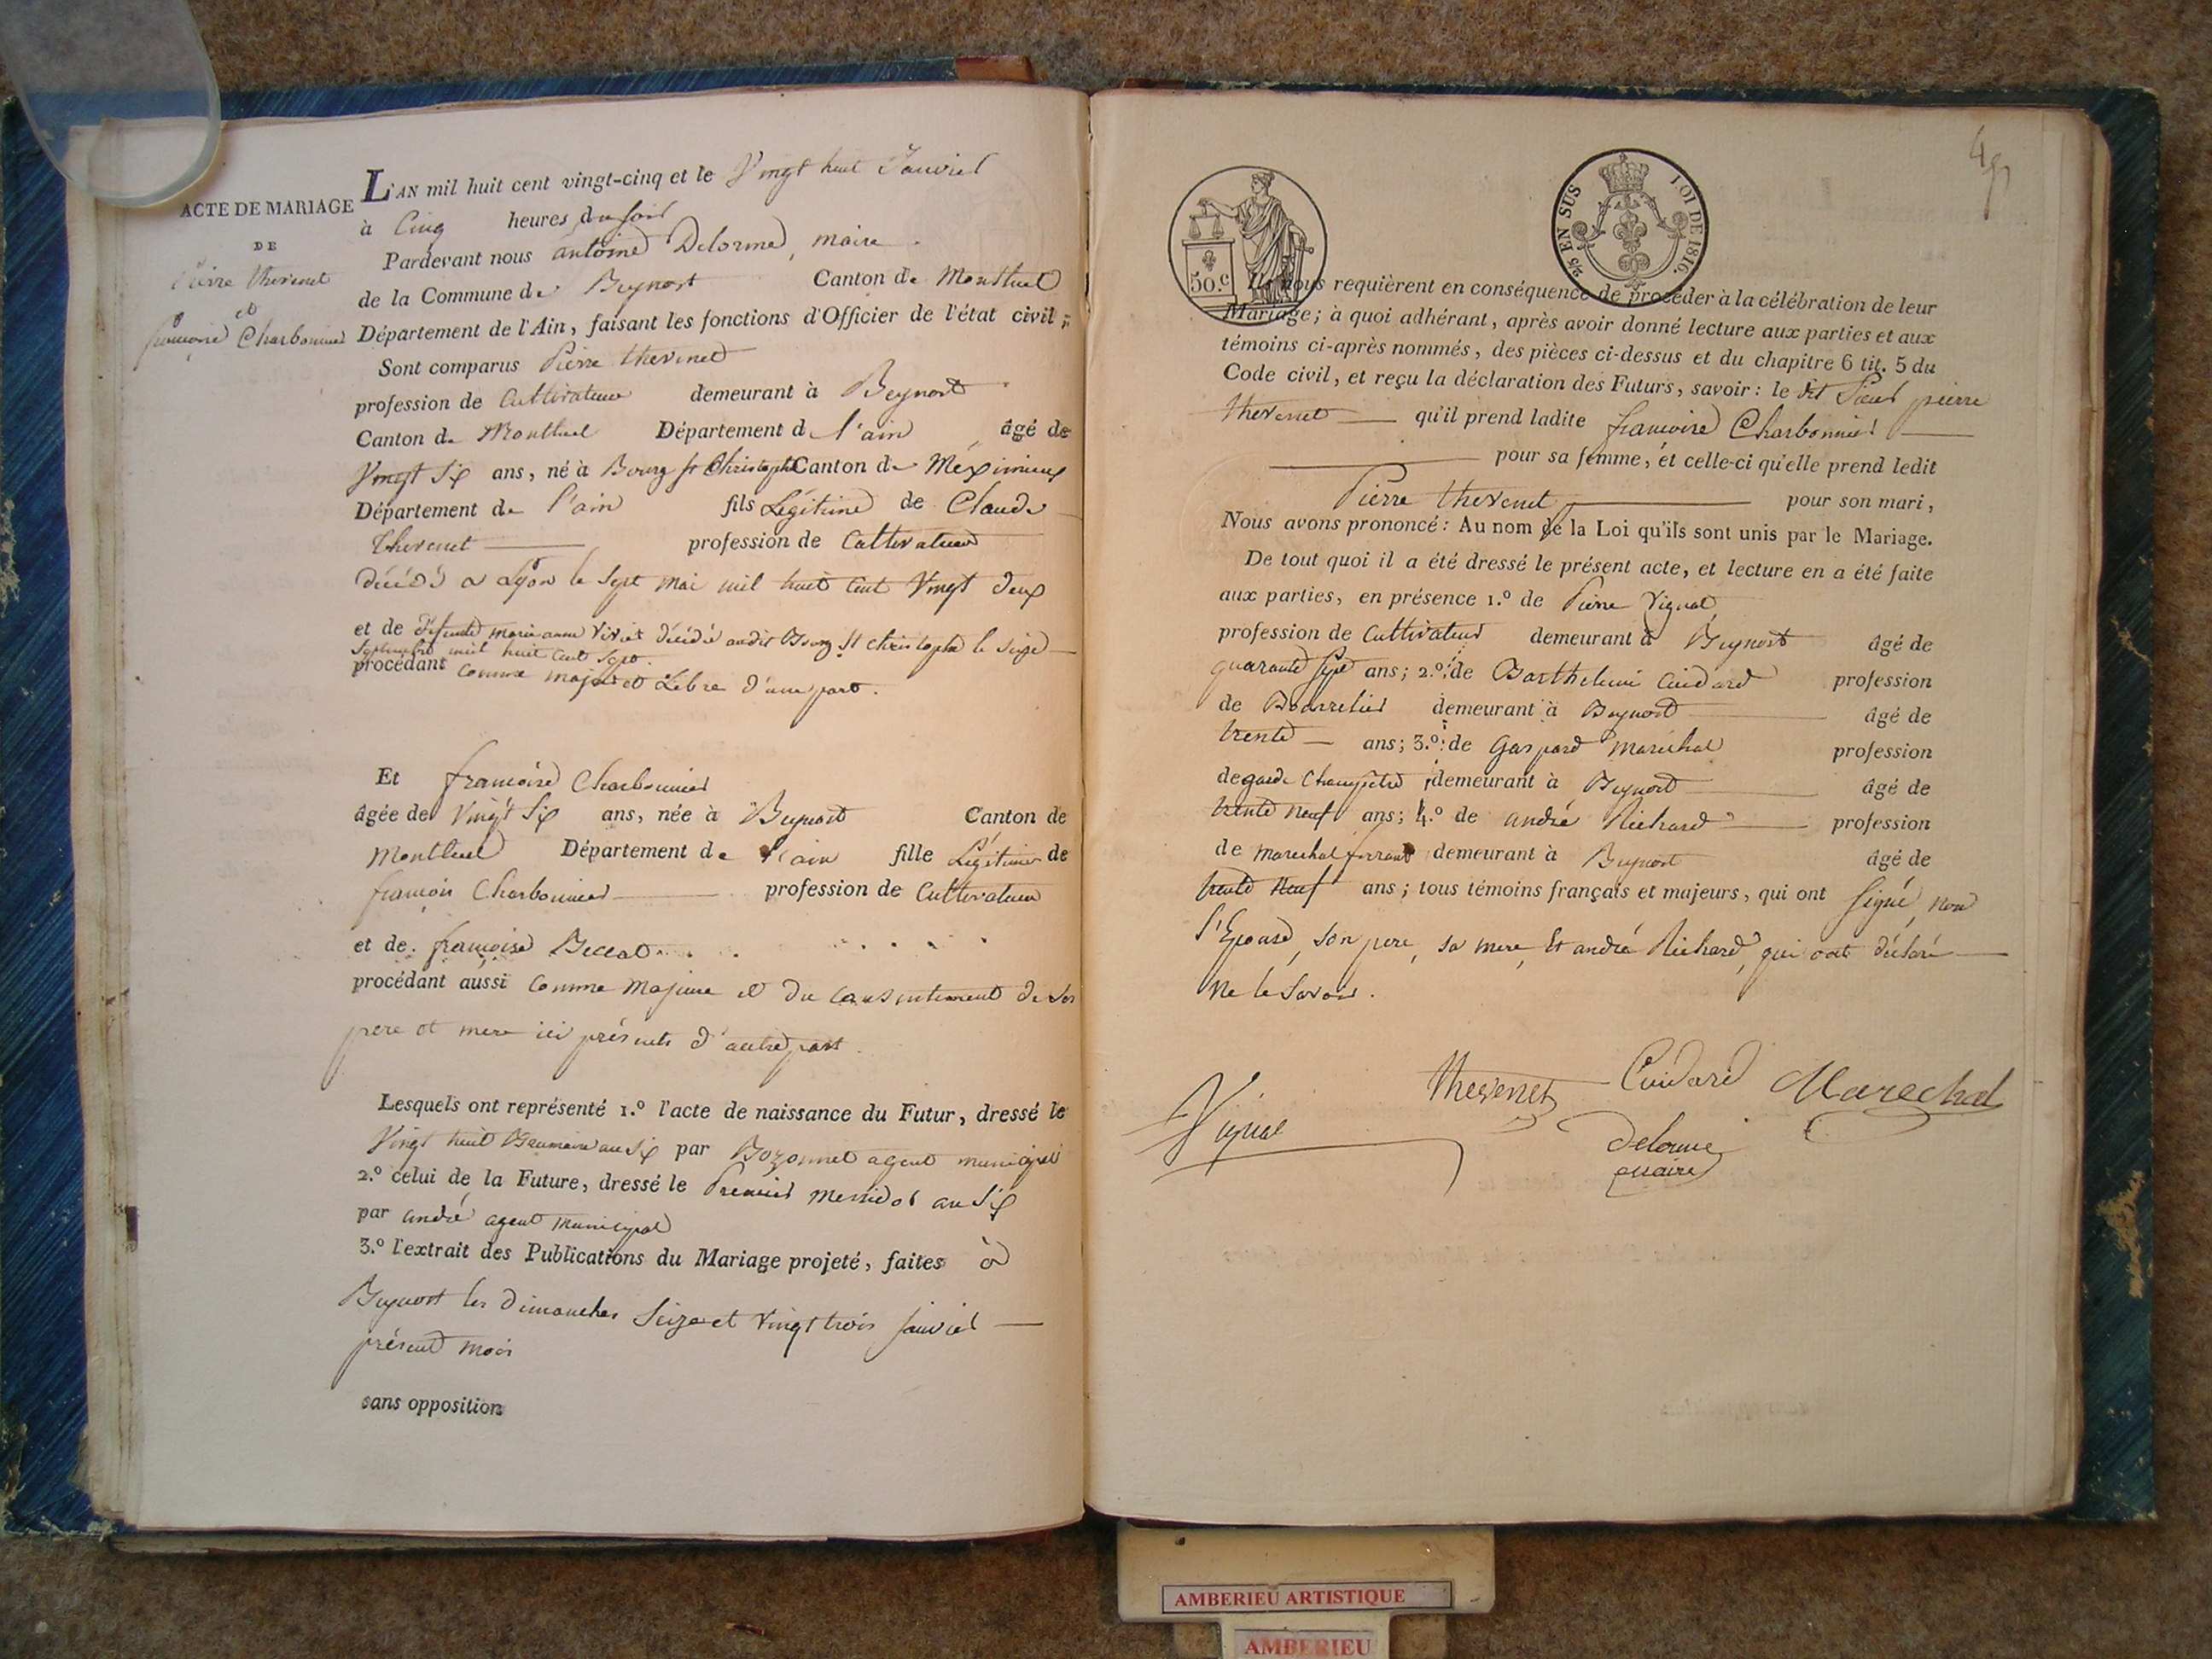 ACTE DE MARIAGE
DE
Pierre thevenet
et
françoise Charbonnier
L'AN mil huit cent vingt-cinq et le Vingt huit Janvier
à Cinq heures du soir
Pardevant nous antoine Delorme, maire
de la Commune de Beynost Canton de Montluel
Département de l'Ain, faisant les fonctions d'Officier de l'état civil;
Sont comparus Pierre thevenet
profession de Cultivateur demeurant à Beynost
Canton de Montluel Département d l'ain âgé de
Vingt Six ans, né à Bourg st Christophe Canton de Méximieux
Département de l'ain fils Légitime de Claude
thevenet profession de Cultivateur
décédé a Lyon le sept mai mil huit Cent Vingt deux
et de défunte marie anne décédée audit Bourg St Christophe le seize
septembre mil huit cent sept.
procédant comme majeur et Libre d'une part.
Et françoise Charbonnier
âgée de Vingt Six ans, née à Beynost Canton de
Montluel Département de l'ain fille Légitime de
françois Charbonnier profession de Cultivateur
et de françoise
procédant aussi comme majeure et du consentement de ses
pere et mere ici présents d'autre part.
Lesquels ont représenté 1.º l'acte de naissance du Futur, dressé le
Vingt huit Brumaire an Six par Bozonnet agent municipal
2.º celui de la Future, dressé le Premier messidor an Six
par andré agent municipal
3.º l'extrait des Publications du Mariage projeté, faites à
Beynost les dimanches Seize et vingt trois janvier
présent mois
sans opposition
49
5/5 EN SUS LOI DE 1816.
50.c
Ils nous requièrent en conséquence de procéder à la célébration de leur
Mariage; à quoi adhérant, après avoir donné lecture aux parties et aux
témoins ci-après nommés, des pièces ci-dessus et du chapitre 6 tit. 5 du
Code civil, et reçu la déclaration des Futurs, savoir: le dit Sieur pierre
thevenet qu'il prend ladite françoise Charbonnier
pour sa femme, et celle-ci qu'elle prend ledit
Pierre thevenet pour son mari,
Nous avons prononcé: Au nom de la Loi qu'ils sont unis par le Mariage.
De tout quoi il a été dressé le présent acte, et lecture en a été faite
aux parties, en présence 1.º de Pierre Vignat
profession de Cultivateur demeurant à Beynost âgé de
quarante sept ans; 2.º de Barthelemi Cuidard profession
de Bourrelier demeurant à Beynost âgé de
trente ans; 3.º de Gaspard maréchal profession
de garde Champêtre demeurant à Beynost âgé de
trente neuf ans; 4.º de andré Richard profession
de marechal ferrant demeurant à Beynost âgé de
trente neuf ans; tous témoins français et majeurs, qui ont signé, non
l'Epouse, son pere, sa mere, Et andré Richard, qui ont déclaré
ne le savoir.
Vignat
thevenet
Cuidard
Marechal
Delorme
maire
AMBERIEU ARTISTIQUE
AMBERIEU